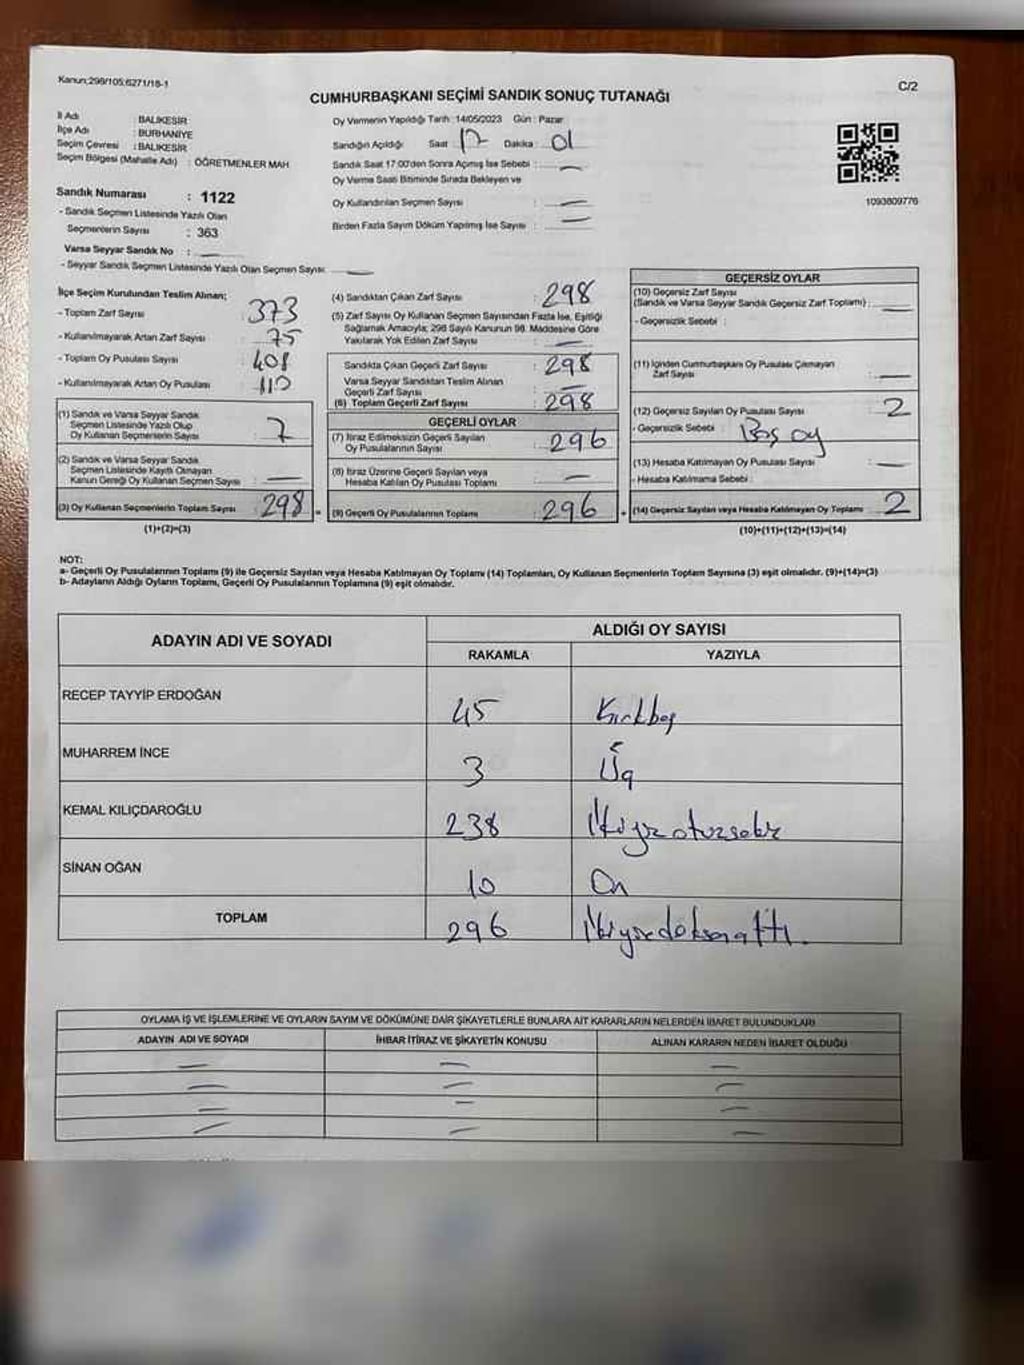 Kanun;298/105;6271/18-1
C/2
CUMHURBAŞKANI SEÇİMİ SANDIK SONUÇ TUTANAĞI
İl Adı : BALIKESİR
İlçe Adı : BURHANİYE
Seçim Çevresi : BALIKESİR
Seçim Bölgesi (Mahalle Adı) : ÖĞRETMENLER MAH.
Sandık Numarası : 1122
- Sandık Seçmen Listesinde Yazılı Olan
Seçmenlerin Sayısı : 363
Varsa Seyyar Sandık No : —
- Seyyar Sandık Seçmen Listesinde Yazılı Olan Seçmen Sayısı: —
Oy Vermenin Yapıldığı Tarih :14/05/2023 Gün : Pazar
Sandığın Açıldığı Saat 17 Dakika : 01
Sandık Saat 17:00'den Sonra Açılmış İse Sebebi : —
Oy Verme Saati Bitiminde Sırada Bekleyen ve
Oy Kullandırılan Seçmen Sayısı : —
Birden Fazla Sayım Döküm Yapılmış İse Sayısı : —
1093809776
İlçe Seçim Kurulundan Teslim Alınan;
- Toplam Zarf Sayısı : 373
- Kullanılmayarak Artan Zarf Sayısı : 75
- Toplam Oy Pusulası Sayısı : 408
- Kullanılmayarak Artan Oy Pusulası : 110
(1) Sandık ve Varsa Seyyar Sandık
Seçmen Listesinde Yazılı Olup
Oy Kullanan Seçmenlerin Sayısı : 7
(2) Sandık ve Varsa Seyyar Sandık
Seçmen Listesinde Kayıtlı Olmayan
Kanun Gereği Oy Kullanan Seçmen Sayısı : —
(3) Oy Kullanan Seçmenlerin Toplam Sayısı : 298 =
(1)+(2)=(3)
(4) Sandıktan Çıkan Zarf Sayısı : 298
(5) Zarf Sayısı Oy Kullanan Seçmen Sayısından Fazla İse, Eşitliği
Sağlamak Amacıyla; 298 Sayılı Kanunun 98. Maddesine Göre
Yakılarak Yok Edilen Zarf Sayısı : —
Sandıkta Çıkan Geçerli Zarf Sayısı : 298
Varsa Seyyar Sandıktan Teslim Alınan
Geçerli Zarf Sayısı : —
(6) Toplam Geçerli Zarf Sayısı : 298
GEÇERLİ OYLAR
(7) İtiraz Edilmeksizin Geçerli Sayılan
Oy Pusulalarının Sayısı : 296
(8) İtiraz Üzerine Geçerli Sayılan veya
Hesaba Katılan Oy Pusulası Toplamı : —
(9) Geçerli Oy Pusulalarının Toplamı : 296 +
GEÇERSİZ OYLAR
(10) Geçersiz Zarf Sayısı
(Sandık ve Varsa Seyyar Sandık Geçersiz Zarf Toplamı) : —
- Geçersizlik Sebebi :
(11) İçinden Cumhurbaşkanı Oy Pusulası Çıkmayan
Zarf Sayısı : —
(12) Geçersiz Sayılan Oy Pusulası Sayısı : 2
- Geçersizlik Sebebi : Boş oy
(13) Hesaba Katılmayan Oy Pusulası Sayısı : —
- Hesaba Katılmama Sebebi :
(14) Geçersiz Sayılan veya Hesaba Katılmayan Oy Toplamı : 2
(10)+(11)+(12)+(13)=(14)
NOT:
a- Geçerli Oy Pusulalarının Toplamı (9) ile Geçersiz Sayılan veya Hesaba Katılmayan Oy Toplamı (14) Toplamları, Oy Kullanan Seçmenlerin Toplam Sayısına (3) eşit olmalıdır. (9)+(14)=(3)
b- Adayların Aldığı Oyların Toplamı, Geçerli Oy Pusulalarının Toplamına (9) eşit olmalıdır.
ADAYIN ADI VE SOYADI ALDIĞI OY SAYISI
RAKAMLA YAZIYLA
RECEP TAYYİP ERDOĞAN 45 Kırkbeş
MUHARREM İNCE 3 Üç
KEMAL KILIÇDAROĞLU 238 İkiyüzotuzsekiz
SİNAN OĞAN 10 On
TOPLAM 296 İkiyüzdoksanaltı.
OYLAMA İŞ VE İŞLEMLERİNE VE OYLARIN SAYIM VE DÖKÜMÜNE DAİR ŞİKAYETLERLE BUNLARA AİT KARARLARIN NELERDEN İBARET BULUNDUKLARI
ADAYIN ADI VE SOYADI İHBAR İTİRAZ VE ŞİKAYETİN KONUSU ALINAN KARARIN NEDEN İBARET OLDUĞU
— — —
— — —
— — —
— — —